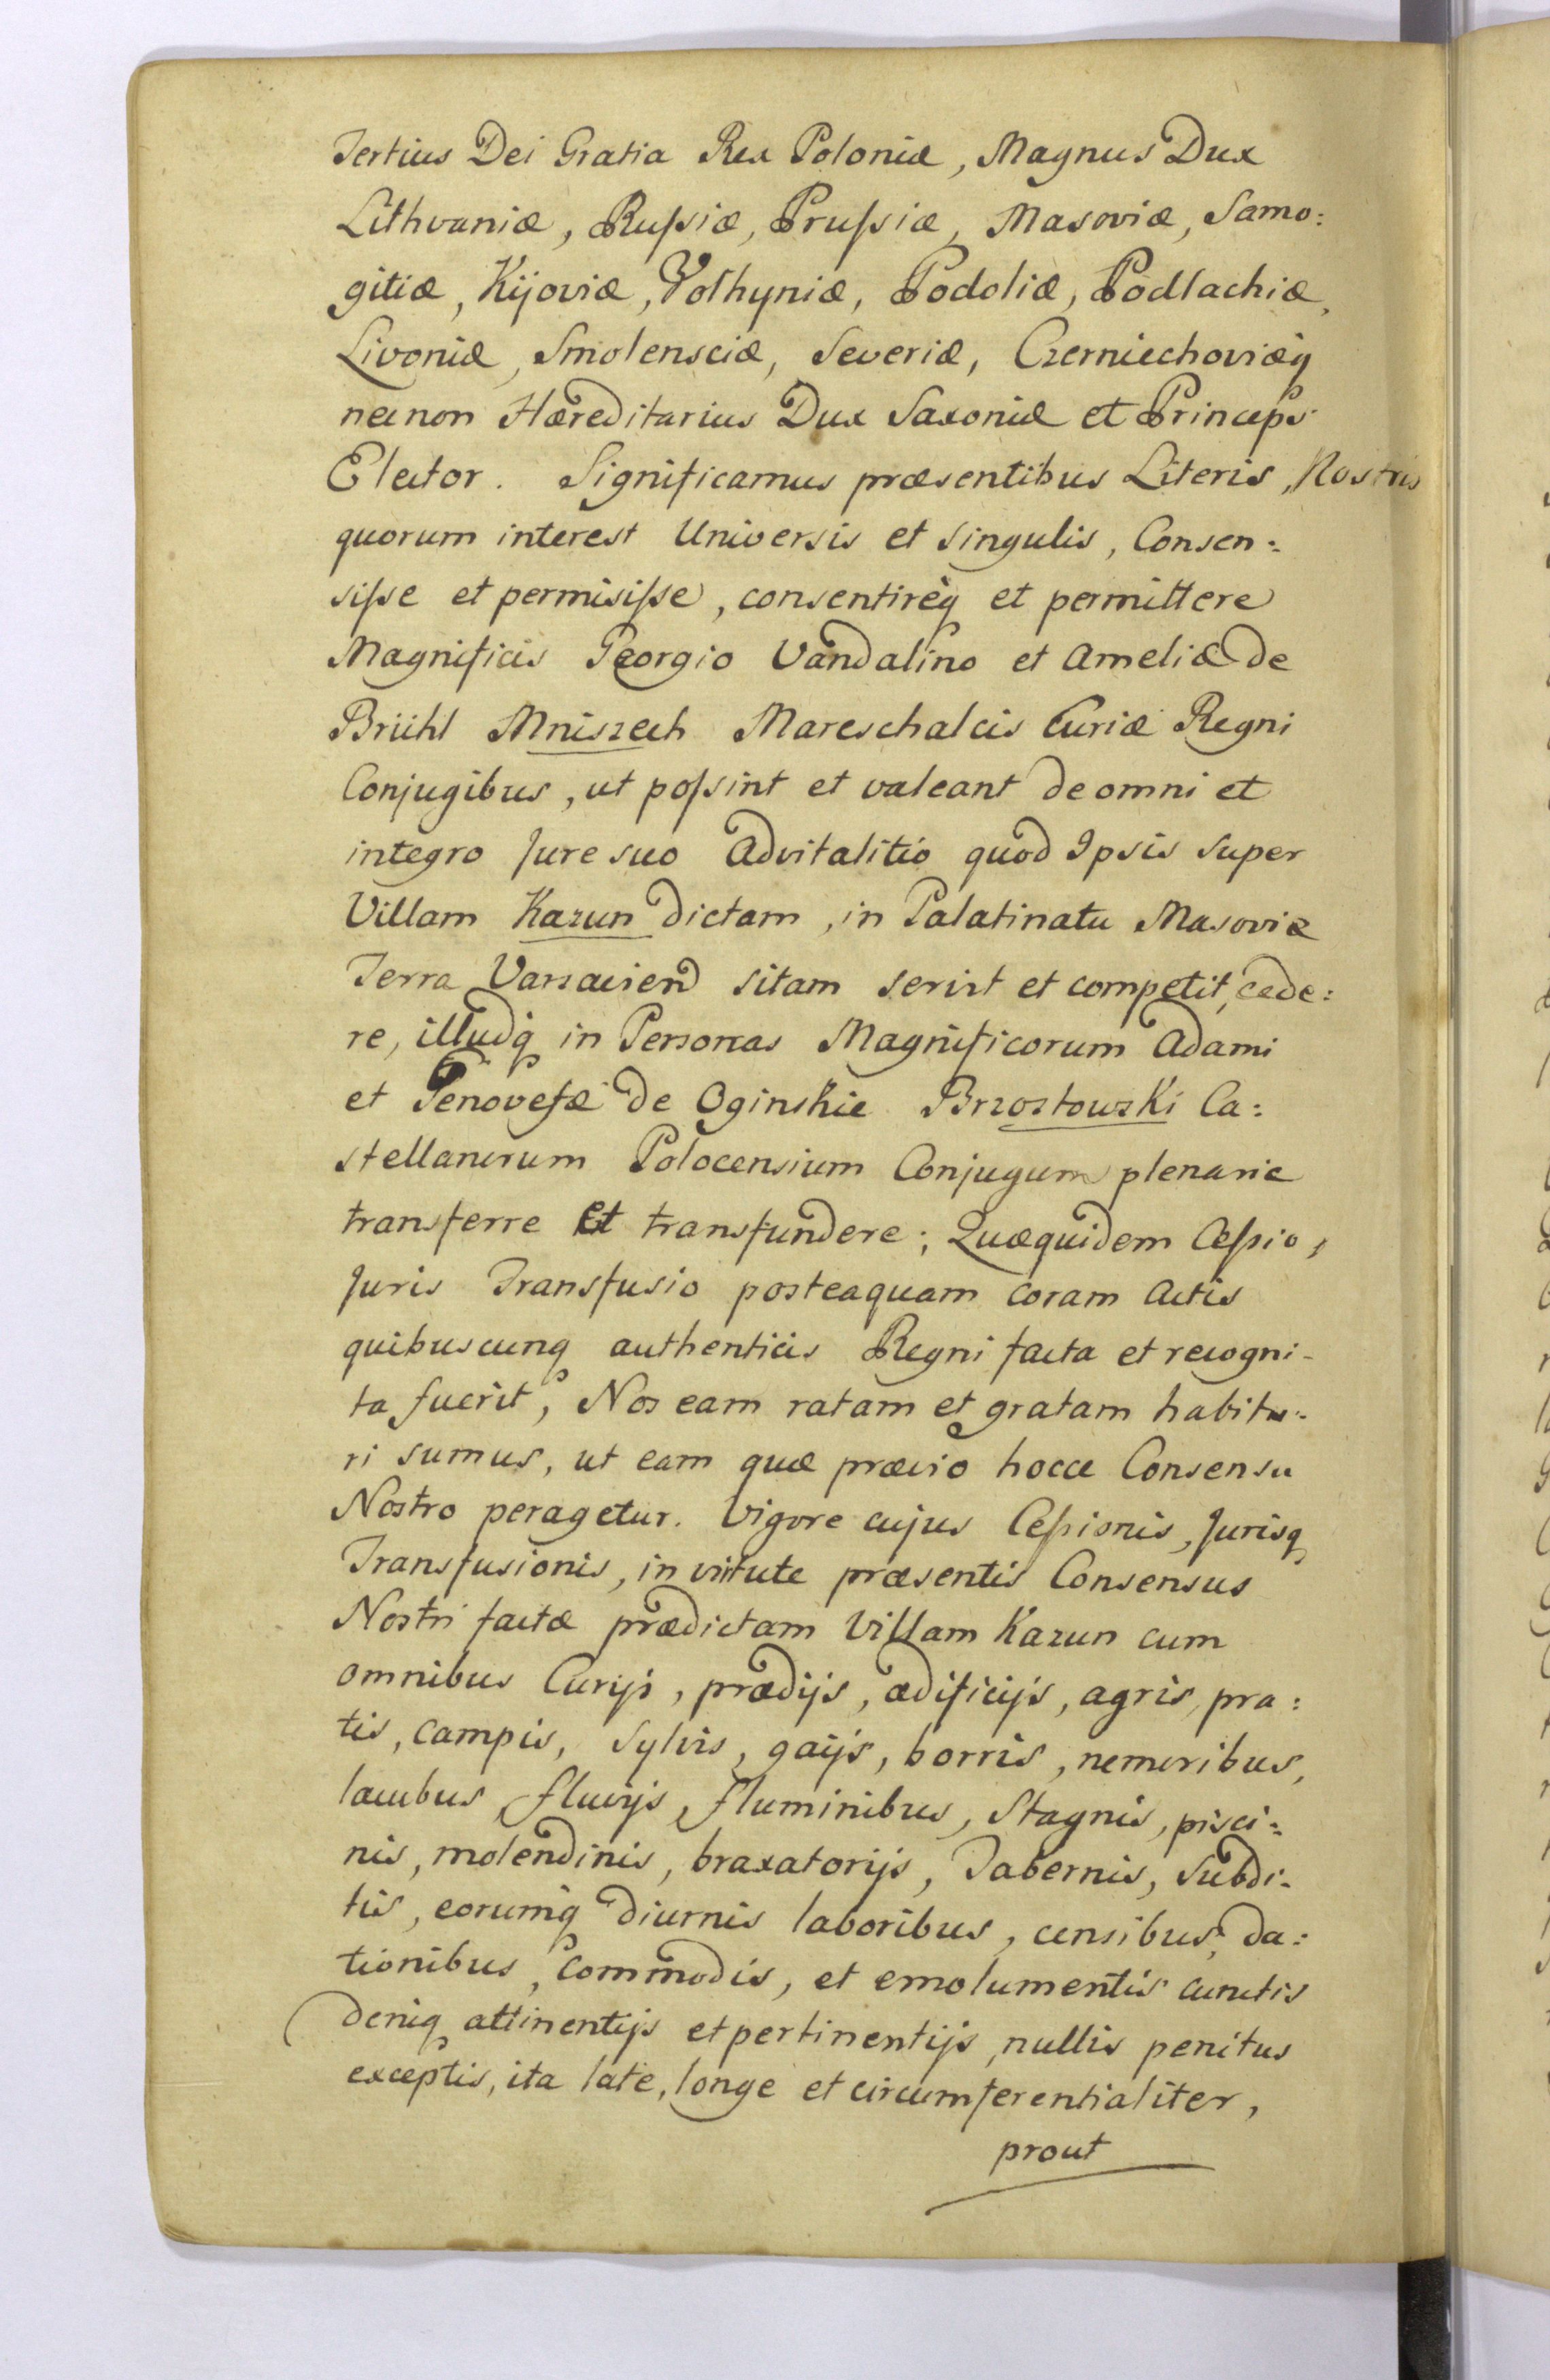 Tertius Dei Gratia Rex Poloniæ, Magnus Dux
Lithvaniæ, Rußiæ, Prußiæ, Masoviæ, Samo:
gitiæ, Kijoviæ, Volhyniæ, Podoliæ, Podlachiæ,
Livoniæ, Smolensciæ, Severiæ, Czerniechoviæq
necnon Hæreditarius Dux Saxoniæ et Princeps
Elector. Significamus præsentibus Literis, Nostris
quorum interest Universis et singulis, Consen:
siße et permisiße, consentireq et permittere
Magnificis Georgio Vandalino et Ameliæ de
Brühl Mniszech Mareschalcis Curiæ Regni
Conjugibus, ut poßint et valeant de omni et
integro Jure suo Advitalitio quod Ipsis super
Villam Kazun dictam, in Palatinatu Masoviæ
Terra Varsaviend sitam servit et competit, cede:
re, illudq in Personas Magnificorum Adami
et Genovefæ de Oginskie Brzostowski Ca:
stellanorum Polocensium Conjugum plenarie
transferre et transfundere; Quæquidem Ceßio,
Juris Transfusio posteaquam coram Actis
quibuscunq authenticis Regni facta et recogni-
ta fuerit, Nos eam ratam et gratam habitu:
ri sumus, ut eam quæ prævio hocce Consensu
Nostro peragetur. Vigore cujus Ceßionis, Jurisq
Transfusionis, in virtute præsentis Consensus
Nostri factæ prædictam Villam Kazun cum
omnibus Curijs, prædijs, ædificijs, agris, pra:
tis, campis, sylvis, gaijs, borris, nemoribus,
lacubus, fluvijs, fluminibus, Stagnis, pisci:
nis, molendinis, braxatorijs, Tabernis, Subdi:
tis, eorumq diurnis laboribus, censibus, da:
tionibus, commodis, et emolumentis cunctis
deniq attinentijs et pertinentijs, nullis penitus
exceptis, ita late, longe et circumferentialiter,
prout